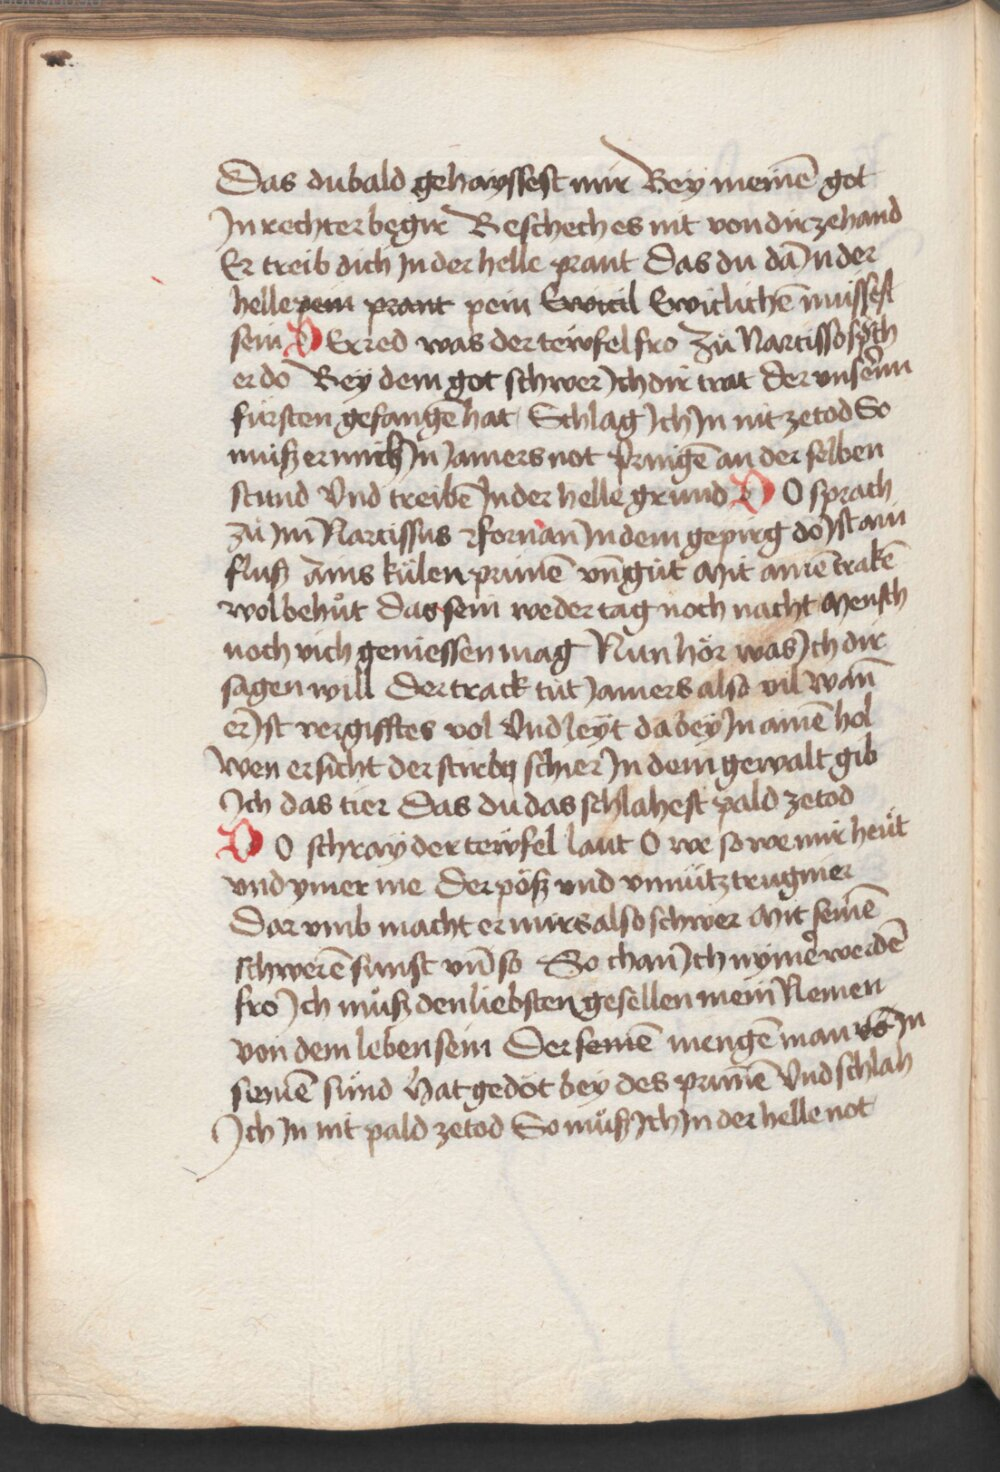 Das du bald gehayssest mir Bey meinē got
In rechter begir Beschech es nit von dir zehand
Er treib dich In der helle prant Das du dān In der
helle pein prant pein Ewicil Ewiclichē muissest
sein DEr red was der tewfel fro Zu Narcisso sprch
er do Bey dem got schwer Ich dir trat Der vnsernn
fürsten gefangē hat Schlag Ich In nit zetod So
muiß er mich In Jamers not Pringē an der selben
stund Vnd treibē In der helle grund DO sprach
zu Im Narcissus vornan In dem gepirg do Ist ain
fluß Ains külen prunnē vn̄ gut Mit ainē trakē
wol behůt Das sein weder tag noch nacht Mensch
noch vich geniessen mag Nun hör was Ich dir
sagen will Der track tut Jamers also vil wan̄
er Ist vergifftes vol Vnd leyt da bey In ainē hol
Wen er sicht der stirbt schier In dem gewalt gib
Ich das tier Das du das schlahest pald zetod
DO schray der tewfel laut O we so we mir heut
vnd ymer me Der pöß vnd vnnütz trugner
Dar vmb macht er mirs also schwer Mit seinē
schwerē sunst vn̄ so So chan Ich nymer werdē
fro Ich muß den liebsten gesellen mein Nemen
von dem leben sein Der seinē mengē man In
seinē sünd Hat gedöt bey des prunnē Vnd schlah
Ich In nit pald zetod So muß Ich In der helle not